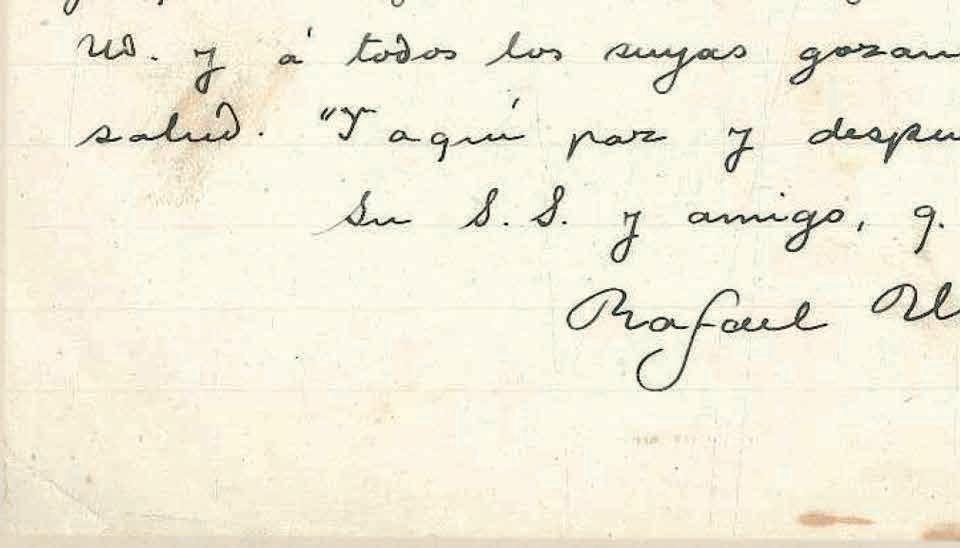 Ud. y á todos los suyos gozan
salud. "Y aquí paz y despu
Su S. S. y amigo, q.
Rafael U